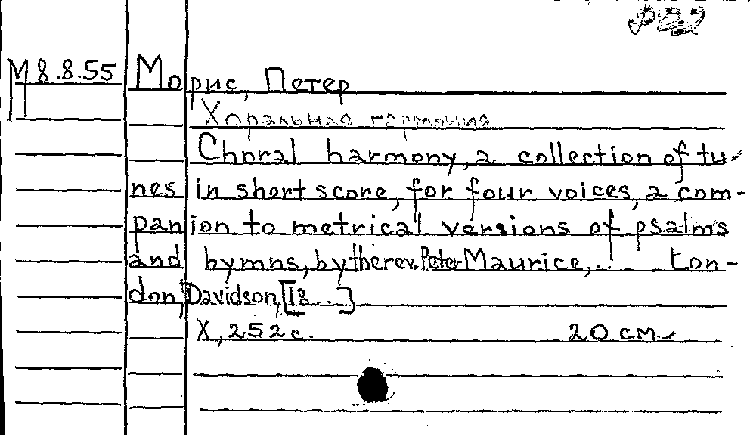 М 8.8.55 Морис, Петер
Хоральная гармония
Choral harmony, a collection of tu-
nes in short score, for four voices, a com-
panion to metrical versions of psalms
and hymns, by the rev. Peter Maurice,... Lon-
don, Davidson, [18...]
X, 252 с. 20 см